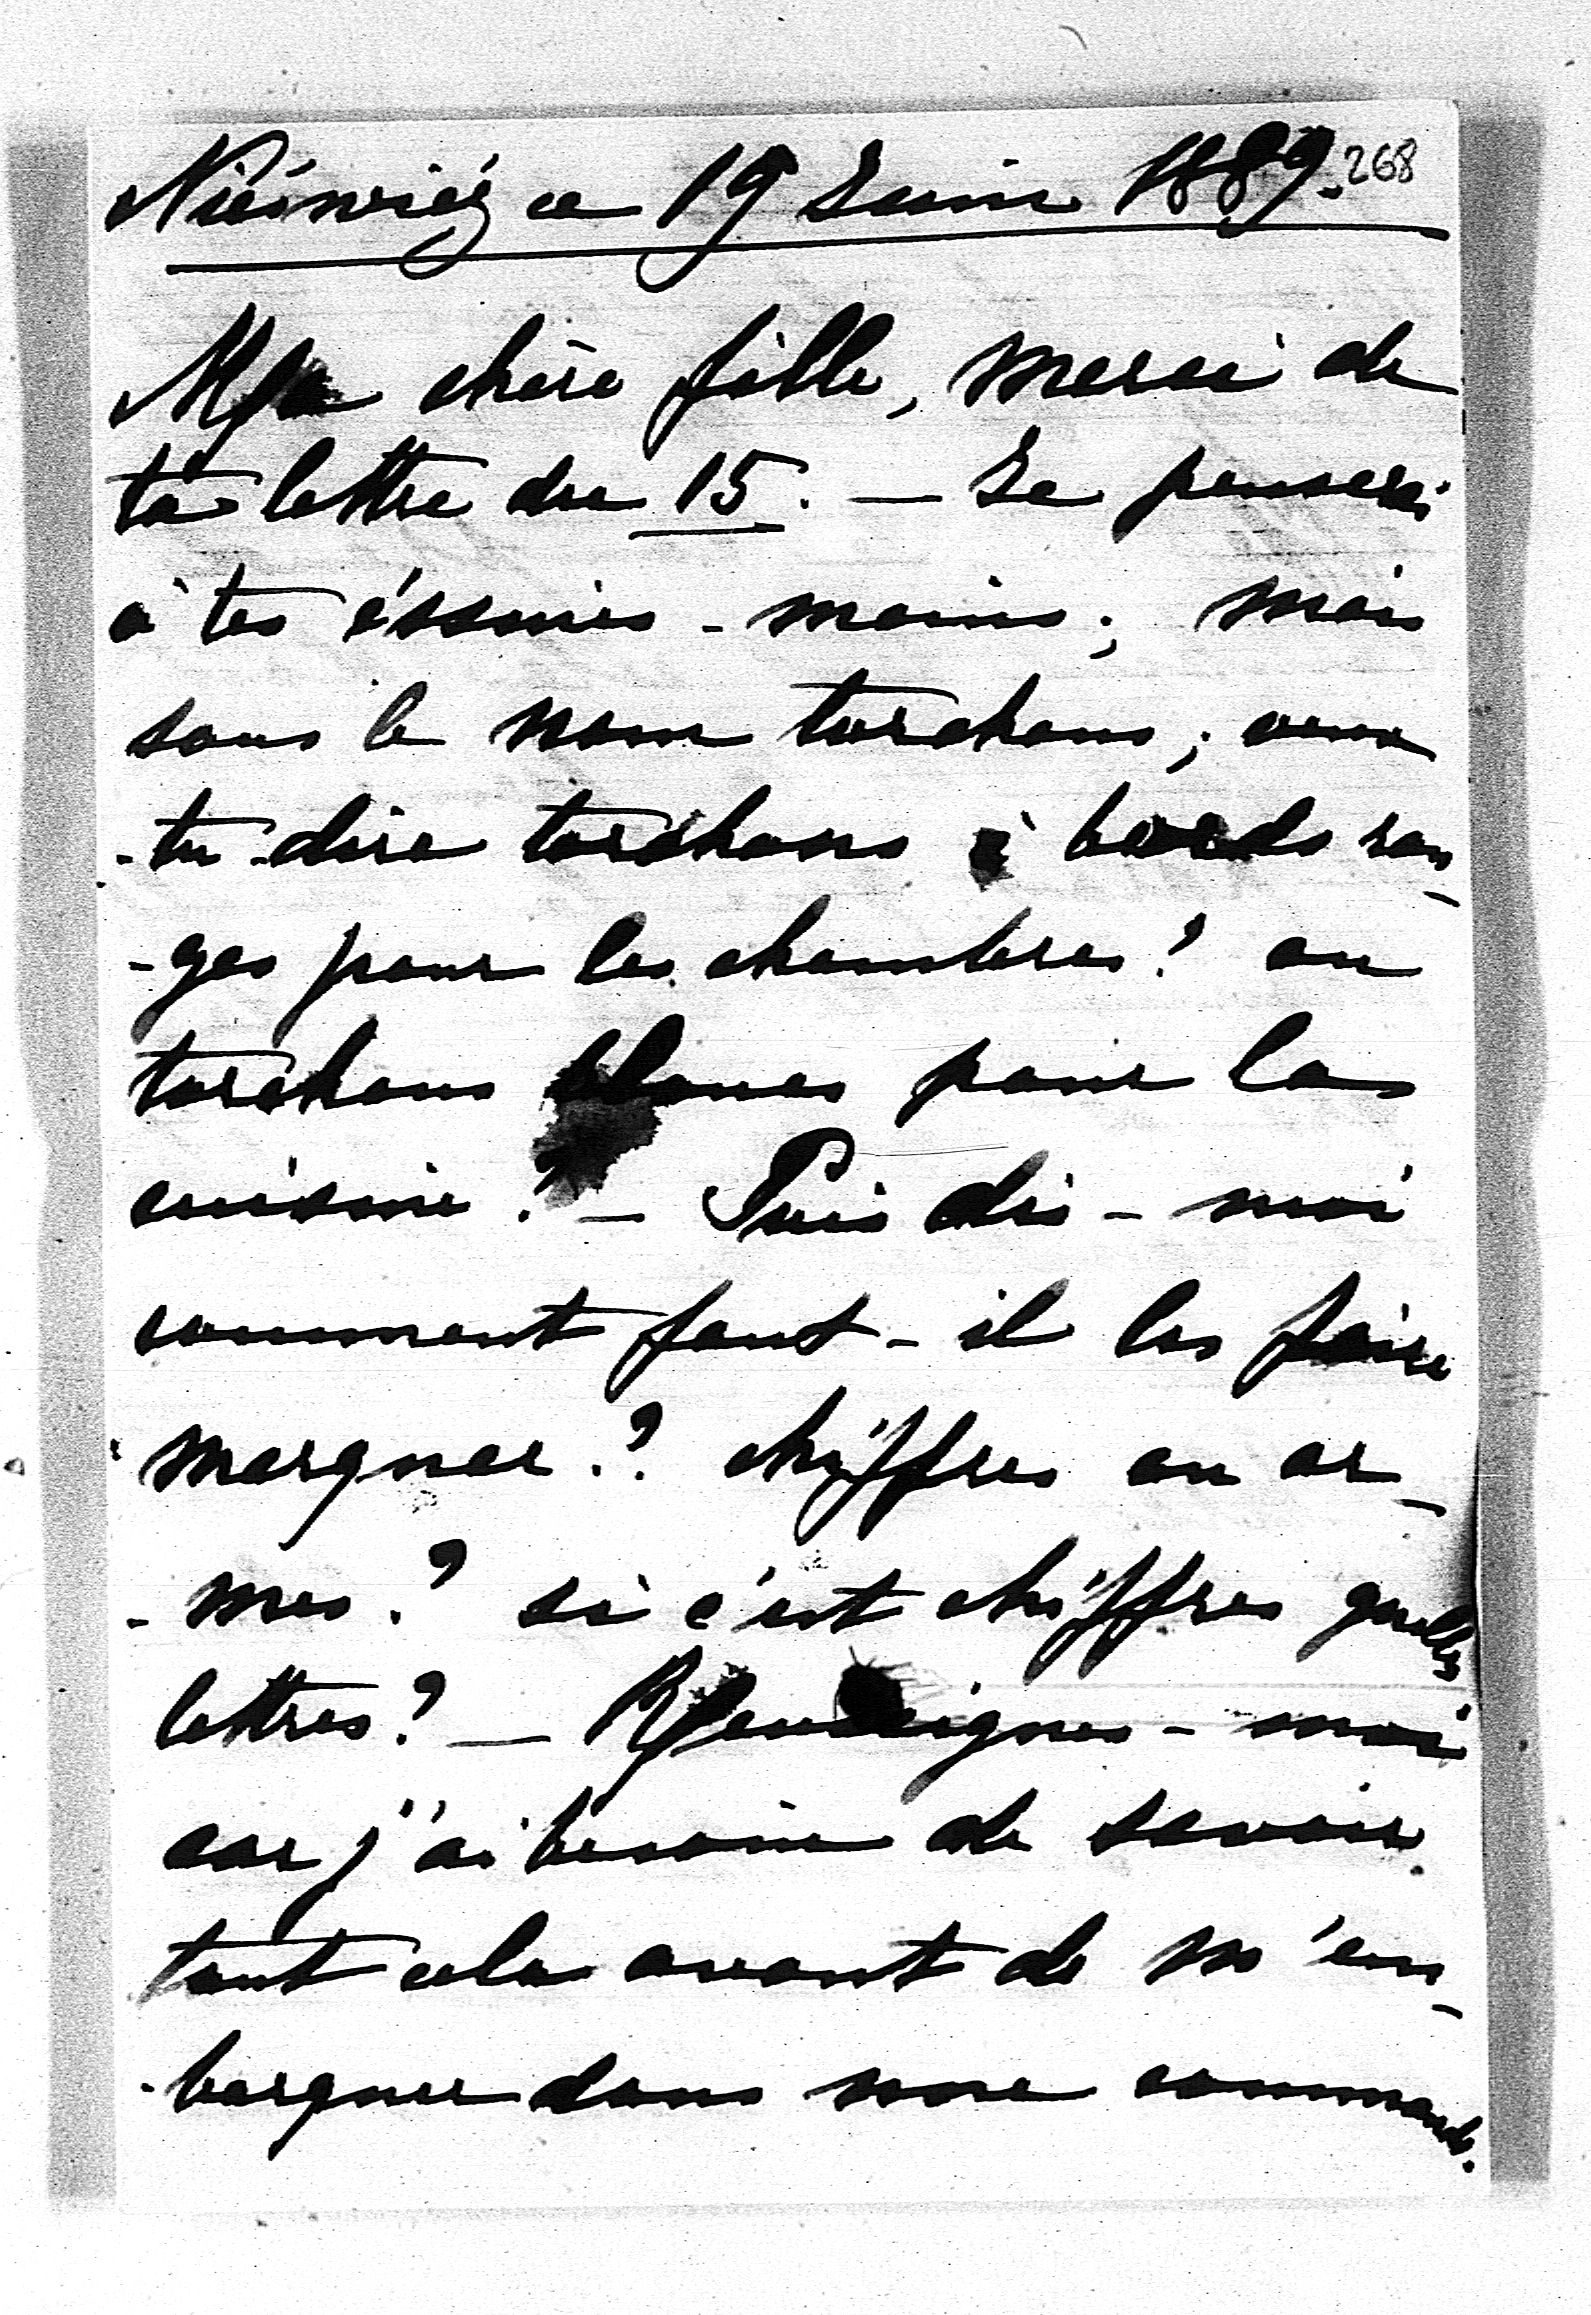 Nieśwież ce 19 Juin 1889. 268
Ma chère fille, merci de
ta lettre du 15. — Je penserai
à tes éssuies - mains; mais
sous le nom torchons; veux
-tu-dire torchons à bords rou-
-ges pour les chambres? ou
torchons blancs pour la
cuisine? — Puis dis - moi
comment faut - il les faire
marquer? chiffres ou ar-
-mes? si c'est chiffres quelles
lettres? — Renseignes - moi
car j'ai besoin de savoir
tout cela avant de m'em-
-barquer dans une commande.